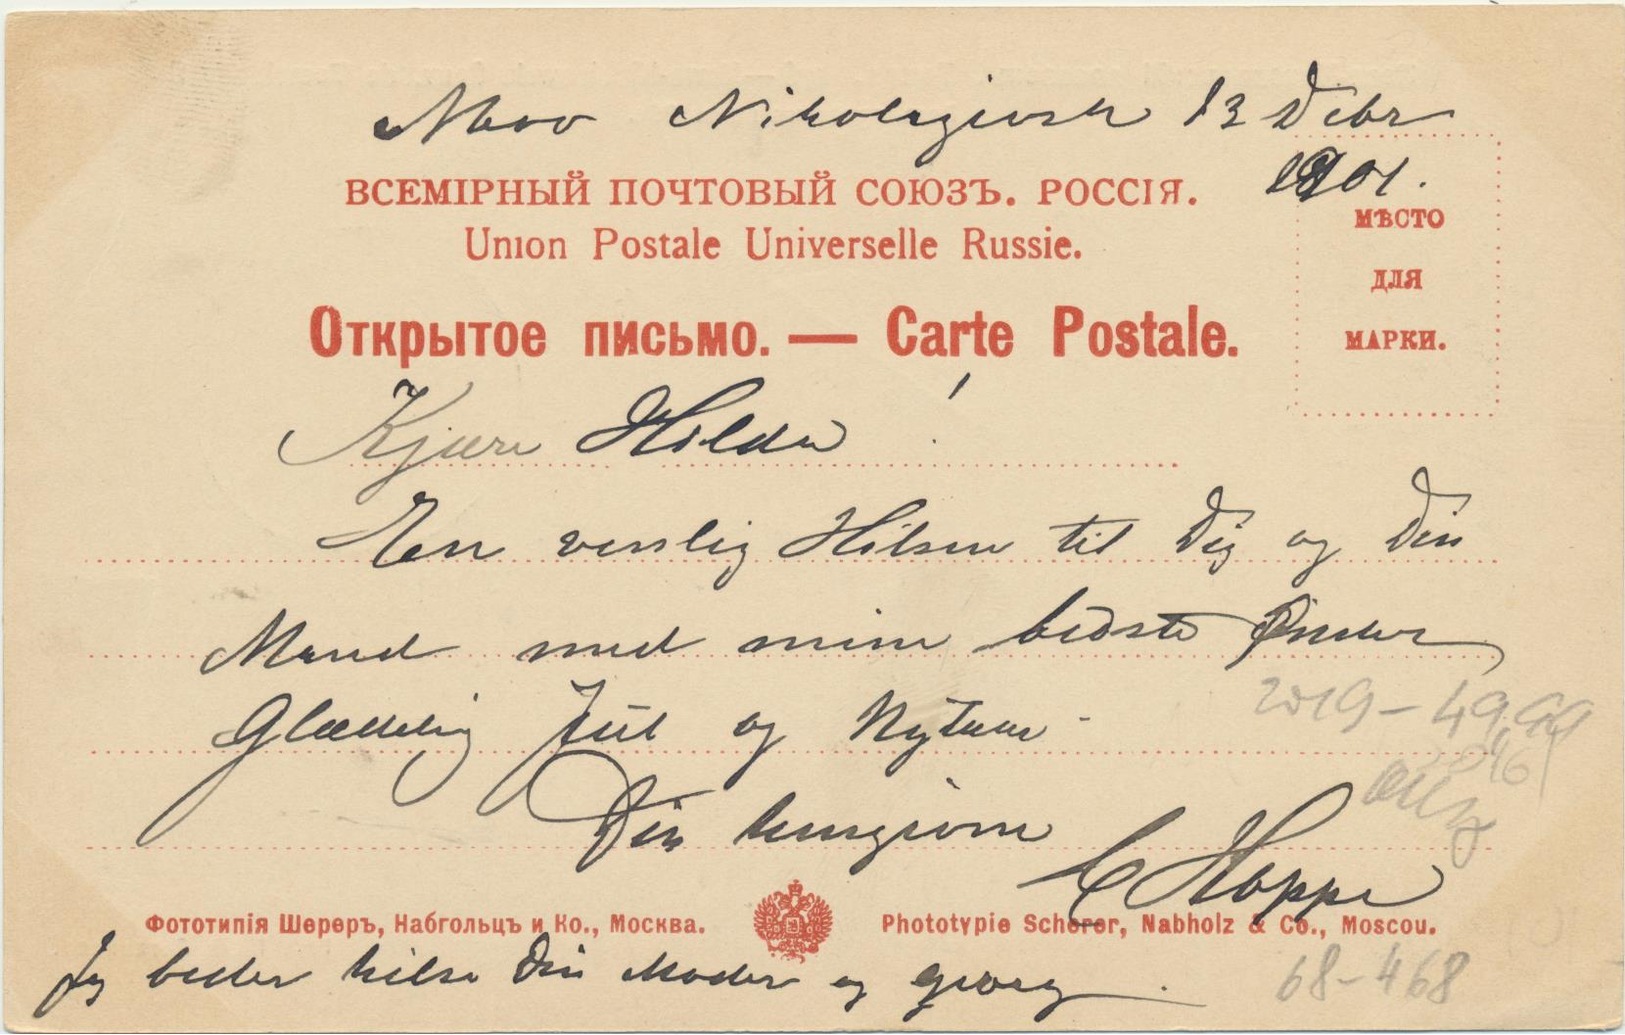 Novo Nikolajevsk 13 Debr
1901.
ВСЕМІРНЫЙ ПОЧТОВЫЙ СОЮЗЪ. РОССІЯ.
Union Postale Universelle Russie.
МѢСТО
ДЛЯ
МАРКИ.
Открытое письмо. — Carte Postale.
Kjære Hilda!
En venlig Hilsen til Dig og Din
Mand med mine bedste Ønsker
Glædelig Jul og Nytaar -
2019 - 49,99
Din hengivne
C Hoppe
Фототипія Шереръ, Набгольцъ и Ко., Москва.
Phototypie Scherer, Nabholz & Co., Moscou.
Jeg beder hilse Din Moder og Georg.
68-468